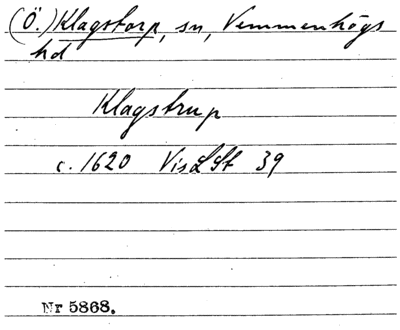 (Ö.) Klagstorp, sn, Vemmenhögs
hd
Klagstrup
c. 1620 VisLSt 39
Nr 5868.